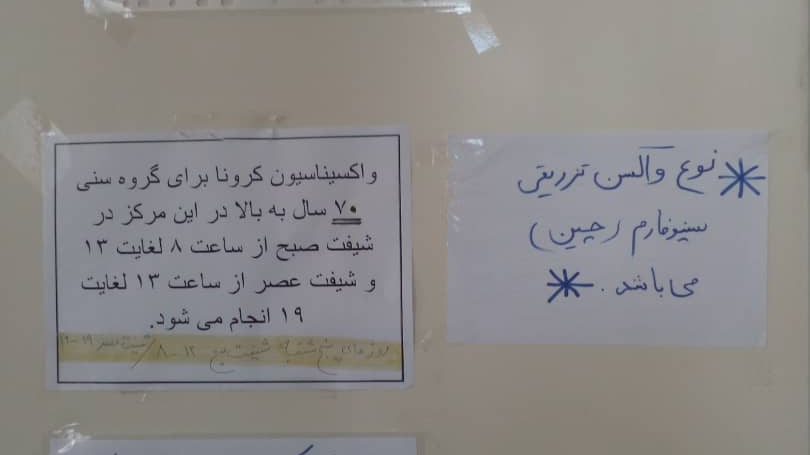 واکسیناسیون کرونا برای گروه سنی
۷۰ سال به بالا در این مرکز در
شیفت صبح از ساعت ۸ لغایت ۱۳
و شیفت عصر از ساعت ۱۳ لغایت
۱۹ انجام می شود.
روزهای پنج شنبه شیفت صبح ۱۲-۸ / شیفت عصر
نوع واکسن تزریقی
سینوفارم (چین)
می باشد.